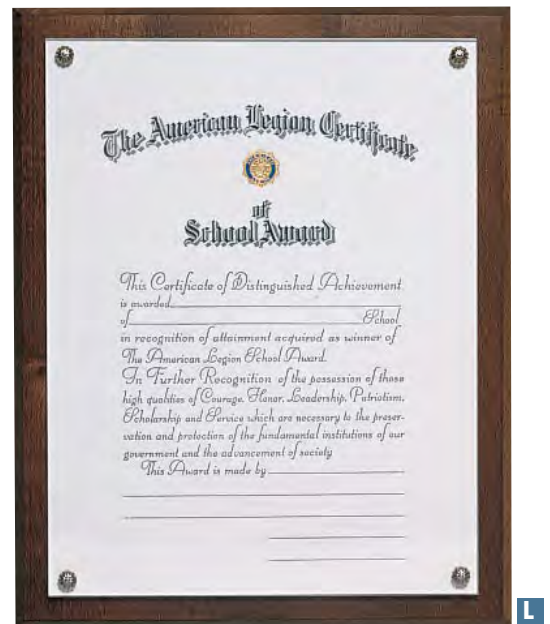 The American Legion Certificate
of
School Award
This Certificate of Distinguished Achievement
is awarded
of School
in recognition of attainment acquired as winner of
The American Legion School Award.
In Further Recognition of the possession of those
high qualities of Courage, Honor, Leadership, Patriotism,
Scholarship and Service which are necessary to the preser-
vation and protection of the fundamental institutions of our
government and the advancement of society
This Award is made by
L